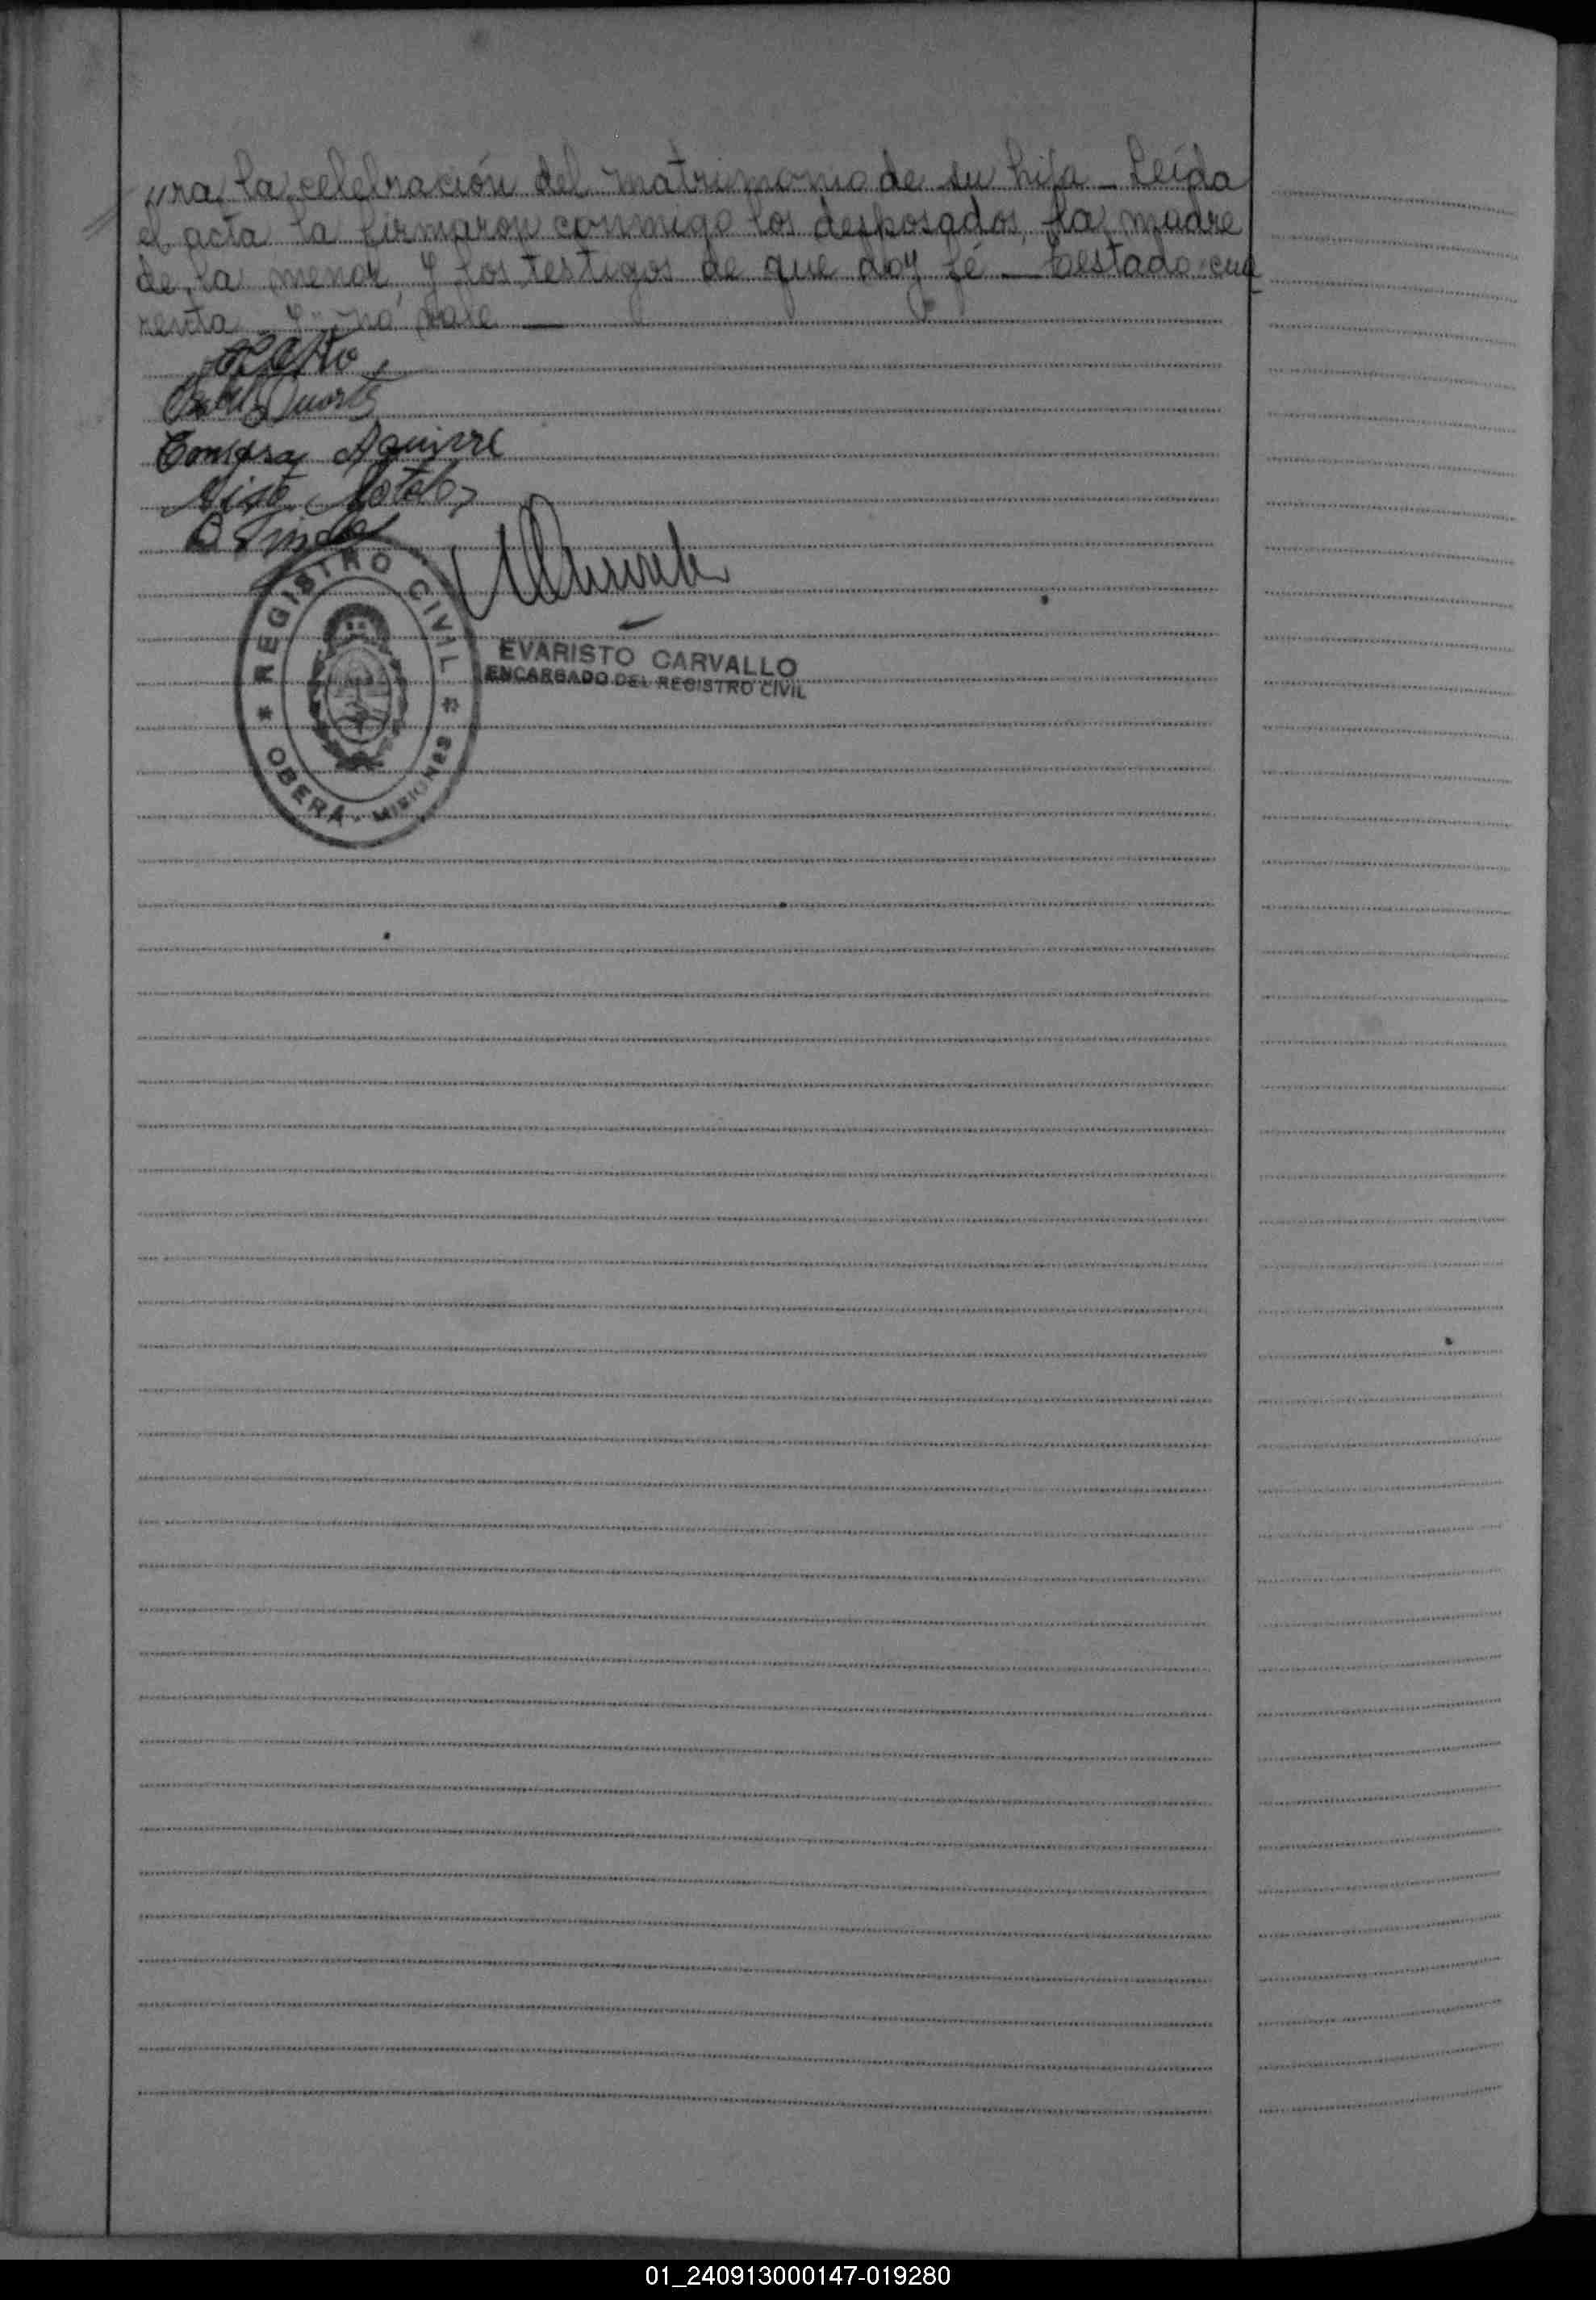 ra la celebración del matrimonio de su hija — Leída
el acta la firmaron conmigo los desposados, la madre
de la menor, y los testigos de que doy fé — Testado cua
renta y no vale —
Duarte
Aguirre
Sotelo
REGISTRO CIVIL
* OBERÁ - MISIONES *
EVARISTO CARVALLO
ENCARGADO DEL REGISTRO CIVIL
01_240913000147-019280